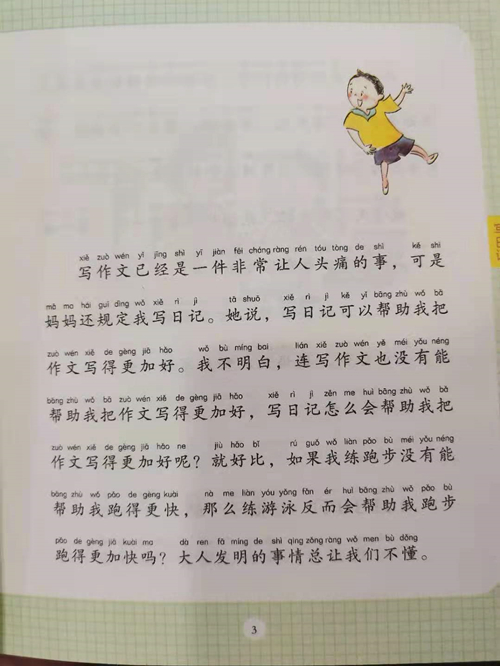 xiě zuò wén yǐ jīng shì yí jiàn fēi cháng ràng rén tóu tòng de shì kě shì
写作文已经是一件非常让人头痛的事，可是
mā ma hái guī dìng wǒ xiě rì jì tā shuō xiě rì jì kě yǐ bāng zhù wǒ bǎ
妈妈还规定我写日记。她说，写日记可以帮助我把
zuò wén xiě de gèng jiā hǎo wǒ bù míng bai lián xiě zuò wén yě méi yǒu néng
作文写得更加好。我不明白，连写作文也没有能
bāng zhù wǒ bǎ zuò wén xiě de gèng jiā hǎo xiě rì jì zěn me huì bāng zhù wǒ bǎ
帮助我把作文写得更加好，写日记怎么会帮助我把
zuò wén xiě de gèng jiā hǎo ne jiù hǎo bǐ rú guǒ wǒ liàn pǎo bù méi yǒu néng
作文写得更加好呢？就好比，如果我练跑步没有能
bāng zhù wǒ pǎo de gèng kuài nà me liàn yóu yǒng fǎn ér huì bāng zhù wǒ pǎo bù
帮助我跑得更快，那么练游泳反而会帮助我跑步
pǎo de gèng jiā kuài ma dà ren fā míng de shì qing zǒng ràng wǒ men bù dǒng
跑得更加快吗？大人发明的事情总让我们不懂。
3